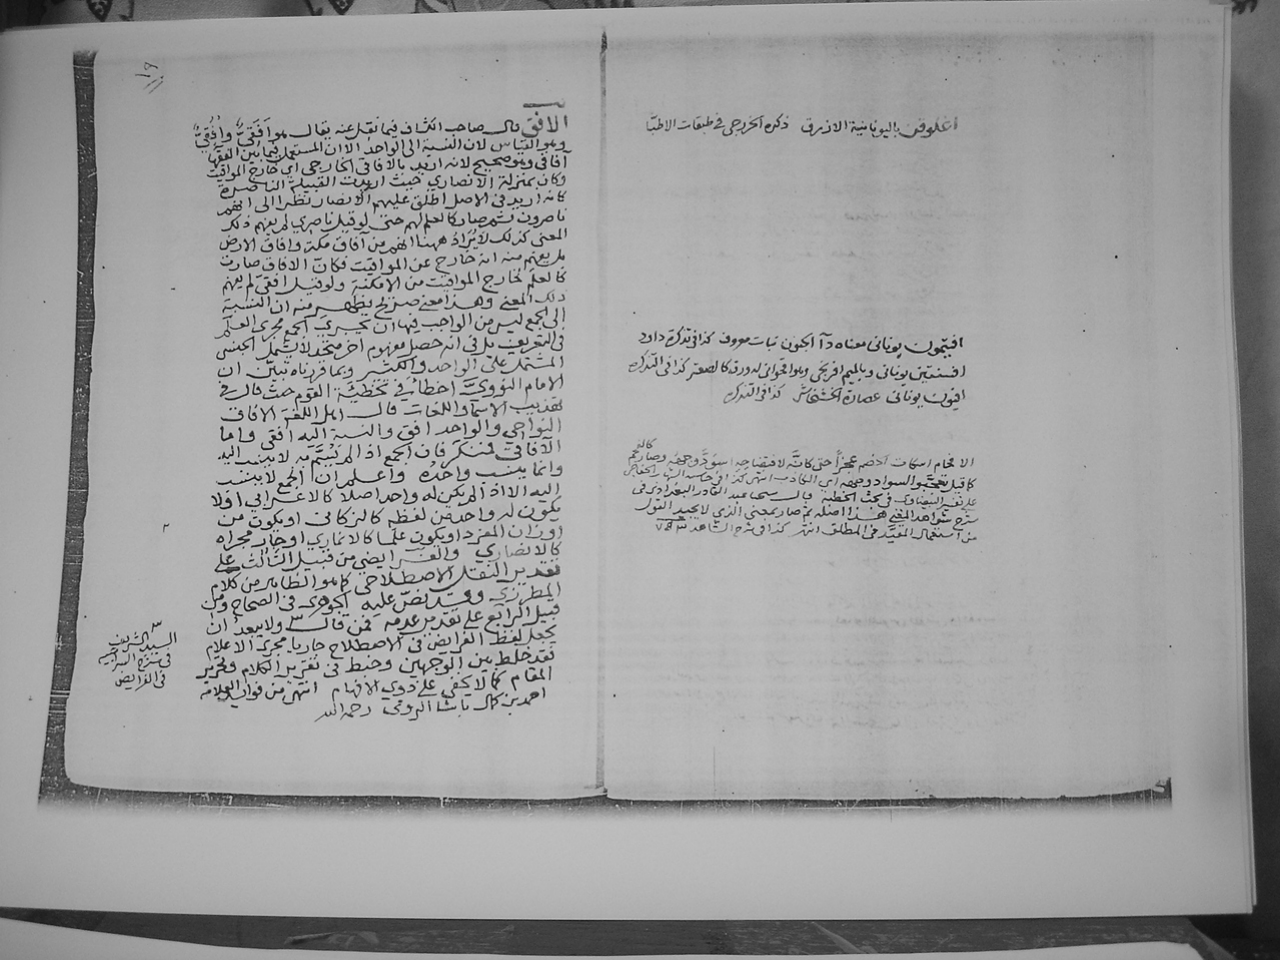 اغلوقن باليونانية الازرق ذكره الخزرجي في طبقات الاطبا
افيتمون يوناني معناه دآ الجنون نبات معروف كذا في تذكرة داود
افسنتين يوناني وبالميم افرنجي وهو اقحواني له ورق كالصعتر كذا في التذكرة
افيون يوناني عصارة الخشخاش كذا في التذكرة
الافحام اسكات الخصم عجزاً حتى كانه لافتضاحه اسودّ وجهه وصار كالفحم
شرح شواهد هذا اصله ثم صار بمعنى الذي لا يجيد القول
من استعمال المقيد في المطلق انتهى كذا في شرح الشاهد
١٩
الافق قال صاحب الكشاف فيما نقل عنه يقال هو اَفَقيٌّ واُفُقيٌّ
وهو القياس لان النسبة الى الواحد الا ان المستعمل فيما بين الفقها
آفاقي وهو صحيح لانه اريد بالآفاقي الخارجي اي خارج المواقيت
وكان بمنزلة الانصاري حيث اريدت القبيلة الناصرة
كانه اريد في الاصل اطلق عليهم الانصار نظرا الى انهم
ناصرون ثم صار كالعلم لهم حتى لو قيل ناصري لم يفهم ذلك
المعنى كذلك لا يُرَادُ ههنا انهم من آفاق مكة وافاق الارض
بل يفهم منه انه خارج عن المواقيت فكانّ الافاق صارت
كالعلم لخارج المواقيت من الامكنة ولو قيل افقي لم يفهم
ذلك المعنى وهذا معنى صريح يظهر منه ان النسبة
الى الجمع ليس من الواجب فيها ان يجري الجمع مجرى العلم
في التعريف بل في انه حصل مفهوم اخر متحد لا يشمل الجنس
المشتمل على الواحد والكثير وبما قررناه تبين ان
الامام النووي اخطأ في تخطئة القوم حيث قال في
تهذيب الاسما واللغات قال اهل اللغة الافاق
النواحي والواحد افق والنسبة اليه افقي واما
الآفاقي فمنكر فان الجمع اذا لم يُسَمَّ به لا ينسب اليه
وانما ينسب واحده واعلم ان الجمع لا ينسب
اليه الا اذا لم يكن له واحد اصلا كالاعرابي او لا
يكون له واحد من لفظه كالركابي او يكون من
اوزان المفرد او يكون علما كالانماري او جار مجراه
كالانصاري والفرايضي من قبيل الثالث على
تقدير النقل الاصطلاحي كما هو الظاهر من كلام
المطرزي وقد نص عليه الجوهري في الصحاح ومن
قبيل الرابع على تقدير عدمه فمن قال ٣ ولا يبعد ان
يجعل لفظ الفرايض في الاصطلاح جاريا مجرى الاعلام
فقد خلط بين الوجهين وخبط في تقرير الكلام وتحرير
المقام كما لا يخفى على ذوي الافهام انتهى من فوايد العلامة
احمد بن كمال باشا الرومي رحمه الله
٣
السيد الشريف
في شرح السراجية
في الفرايض